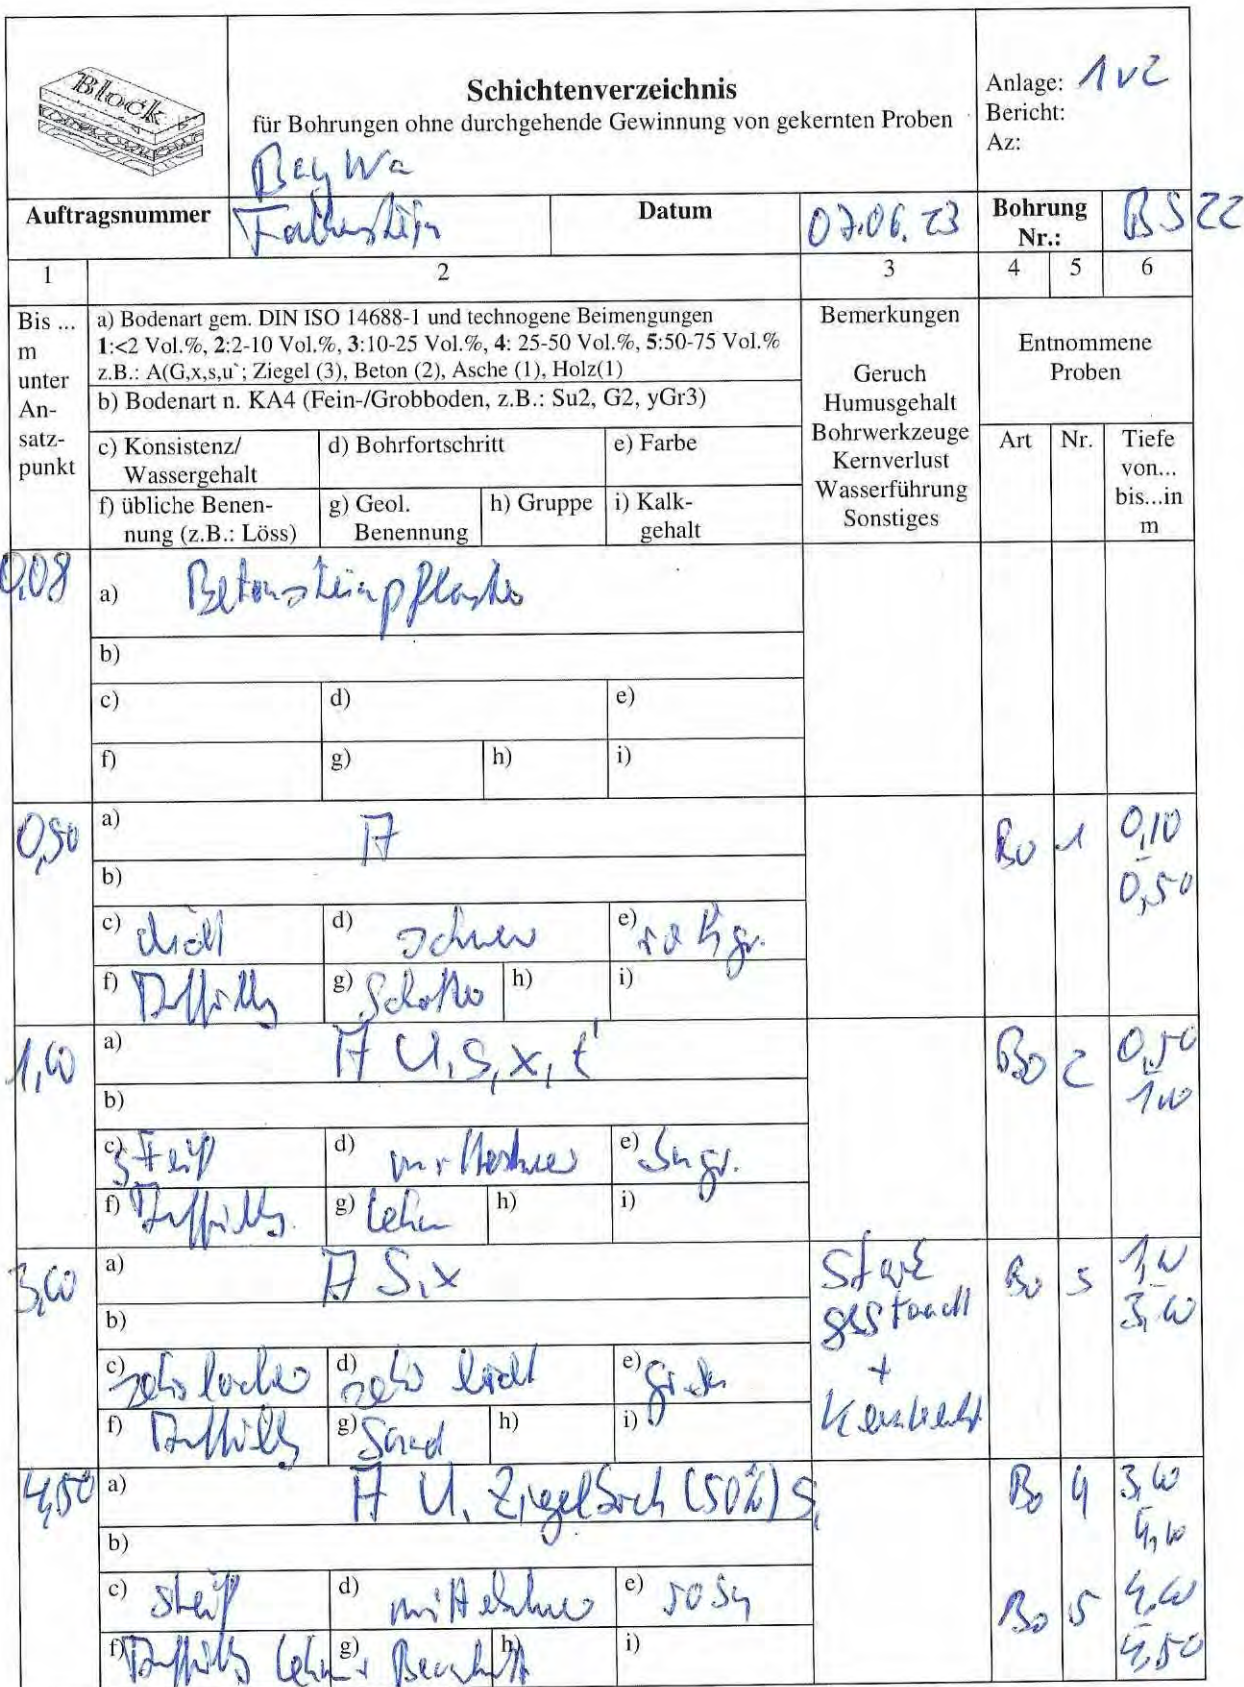 Block
Schichtenverzeichnis
für Bohrungen ohne durchgehende Gewinnung von gekernten Proben
BayWa
Anlage: 1 v 2
Bericht:
Az:
Auftragsnummer
Datum
07.06.23
Bohrung
Nr.:
BS 22
1
2
3
4
5
6
Bis ...
m
unter
An-
satz-
punkt
a) Bodenart gem. DIN ISO 14688-1 und technogene Beimengungen
1:<2 Vol.%, 2:2-10 Vol.%, 3:10-25 Vol.%, 4: 25-50 Vol.%, 5:50-75 Vol.%
z.B.: A(G,x,s,u`; Ziegel (3), Beton (2), Asche (1), Holz(1)
b) Bodenart n. KA4 (Fein-/Grobboden, z.B.: Su2, G2, yGr3)
c) Konsistenz/
Wassergehalt
d) Bohrfortschritt
e) Farbe
f) übliche Benen-
nung (z.B.: Löss)
g) Geol.
Benennung
h) Gruppe
i) Kalk-
gehalt
Bemerkungen
Geruch
Humusgehalt
Bohrwerkzeuge
Kernverlust
Wasserführung
Sonstiges
Entnommene
Proben
Art
Nr.
Tiefe
von...
bis...in
m
0,08
a) Betonsteinpflaster
b)
c)
d)
e)
f)
g)
h)
i)
0,50
a) A
b)
c) dicht
d) schwer
e)
f) Auffüllg
g) Schotter
h)
i)
Bo
1
0,10
-
0,50
1,00
a) A U, s, x, t'
b)
c) steif
d) mittelschwer
e) bngr.
f) Auffüllg.
g) Lehm
h)
i)
Bo
2
0,50
-
1,00
3,00
a) A S, x
b)
c) sehr locker
d) sehr leicht
e)
f) Auffüllg
g) Sand
h)
i)
stark
gestaucht
+
Kernverlust
Bo
3
1,00
-
3,00
4,50
a) A U, Ziegelbruch (50%) s,
b)
c) steif
d) mittelschwer
e) robn
f) Auffüllg Lehm +
g) Bauschutt
h)
i)
Bo
4
3,00
-
4,00
Bo
5
4,00
-
4,50